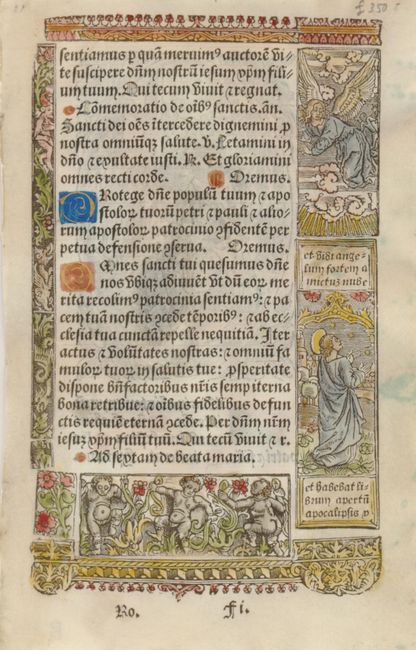 £ 350
sentiamus ꝑ quā meruimꝰ auctorē vi⸗
te suscipere dn̄m nostrū iesum xp̄m fili⸗
um tuum. Qui tecum viuit ⁊ regnat.
Cōmemoratio de oībꝰ sanctis. an.
Sancti dei oēs ītercedere dignemini ꝓ
nostra omniūqꝫ salute. v. Letamini in
dn̄o ⁊ exultate iusti. ℞. Et gloriamini
omnes recti corde. Oremus.
PRotege dn̄e populū tuum ⁊ apo
stoloꝝ tuorū petri ⁊ pauli ⁊ alio⸗
rum apostoloꝝ patrocinio ꝯfidentē per
petua defensione ꝯserua. Oremus.
OMnes sancti tui quesumus dn̄e
nos vbiqꝫ adiuuēt vt dū eoꝝ me
rita recolimꝰ patrocinia sentiamꝰ: ⁊ pa
cem tuā nostris ꝯcede tēporibꝰ: ⁊ ab ec⸗
clesia tua cunctā repelle nequitiā. Iter
actus ⁊ volūtates nostras: ⁊ omniū fa
muloꝝ tuoꝝ in salutis tue: ꝓsperitate
dispone bn̄factoribus nr̄is sempiterna
bona retribue: ⁊ oībus fidelibus defun
ctis requiē eternā ꝯcede. Per dn̄m nr̄m
iesuꝫ xp̄m filiū tuū. Qui tecū viuit ⁊ r.
Ad septam de beata maria.
et vidi ange⸗
lum fortem a
mictus nube
et habebat li⸗
brum apertū
apocalipsis x
Ro. F i.